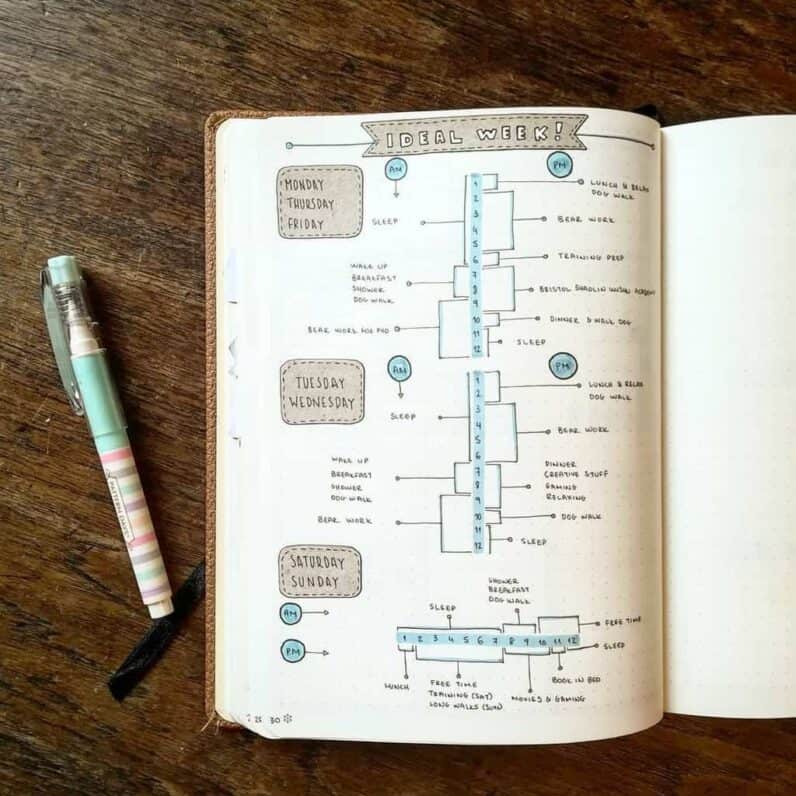 IDEAL WEEK!
AM
PM
MONDAY
THURSDAY
FRIDAY
SLEEP
WAKE UP
BREAKFAST
SHOWER
DOG WALK
BEAR WORK
1
2
3
4
5
6
7
8
9
10
11
12
LUNCH & RELAX
DOG WALK
BEAR WORK
TRAINING PREP
BRISTOL SHAOLIN WUSHU ACADEMY
DINNER & WALK DOG
SLEEP
TUESDAY
WEDNESDAY
AM
PM
SLEEP
WAKE UP
BREAKFAST
SHOWER
DOG WALK
BEAR WORK
1
2
3
4
5
6
7
8
9
10
11
12
LUNCH & RELAX
DOG WALK
BEAR WORK
DINNER
CREATIVE STUFF
GAMING
RELAXING
DOG WALK
SLEEP
SATURDAY
SUNDAY
AM
PM
SLEEP
SHOWER
BREAKFAST
DOG WALK
FREE TIME
1 2 3 4 5 6 7 8 9 10 11 12
SLEEP
LUNCH
FREE TIME
TRAINING (SAT)
LONG WALKS (SUN)
MOVIES & GAMING
BOOK IN BED
30